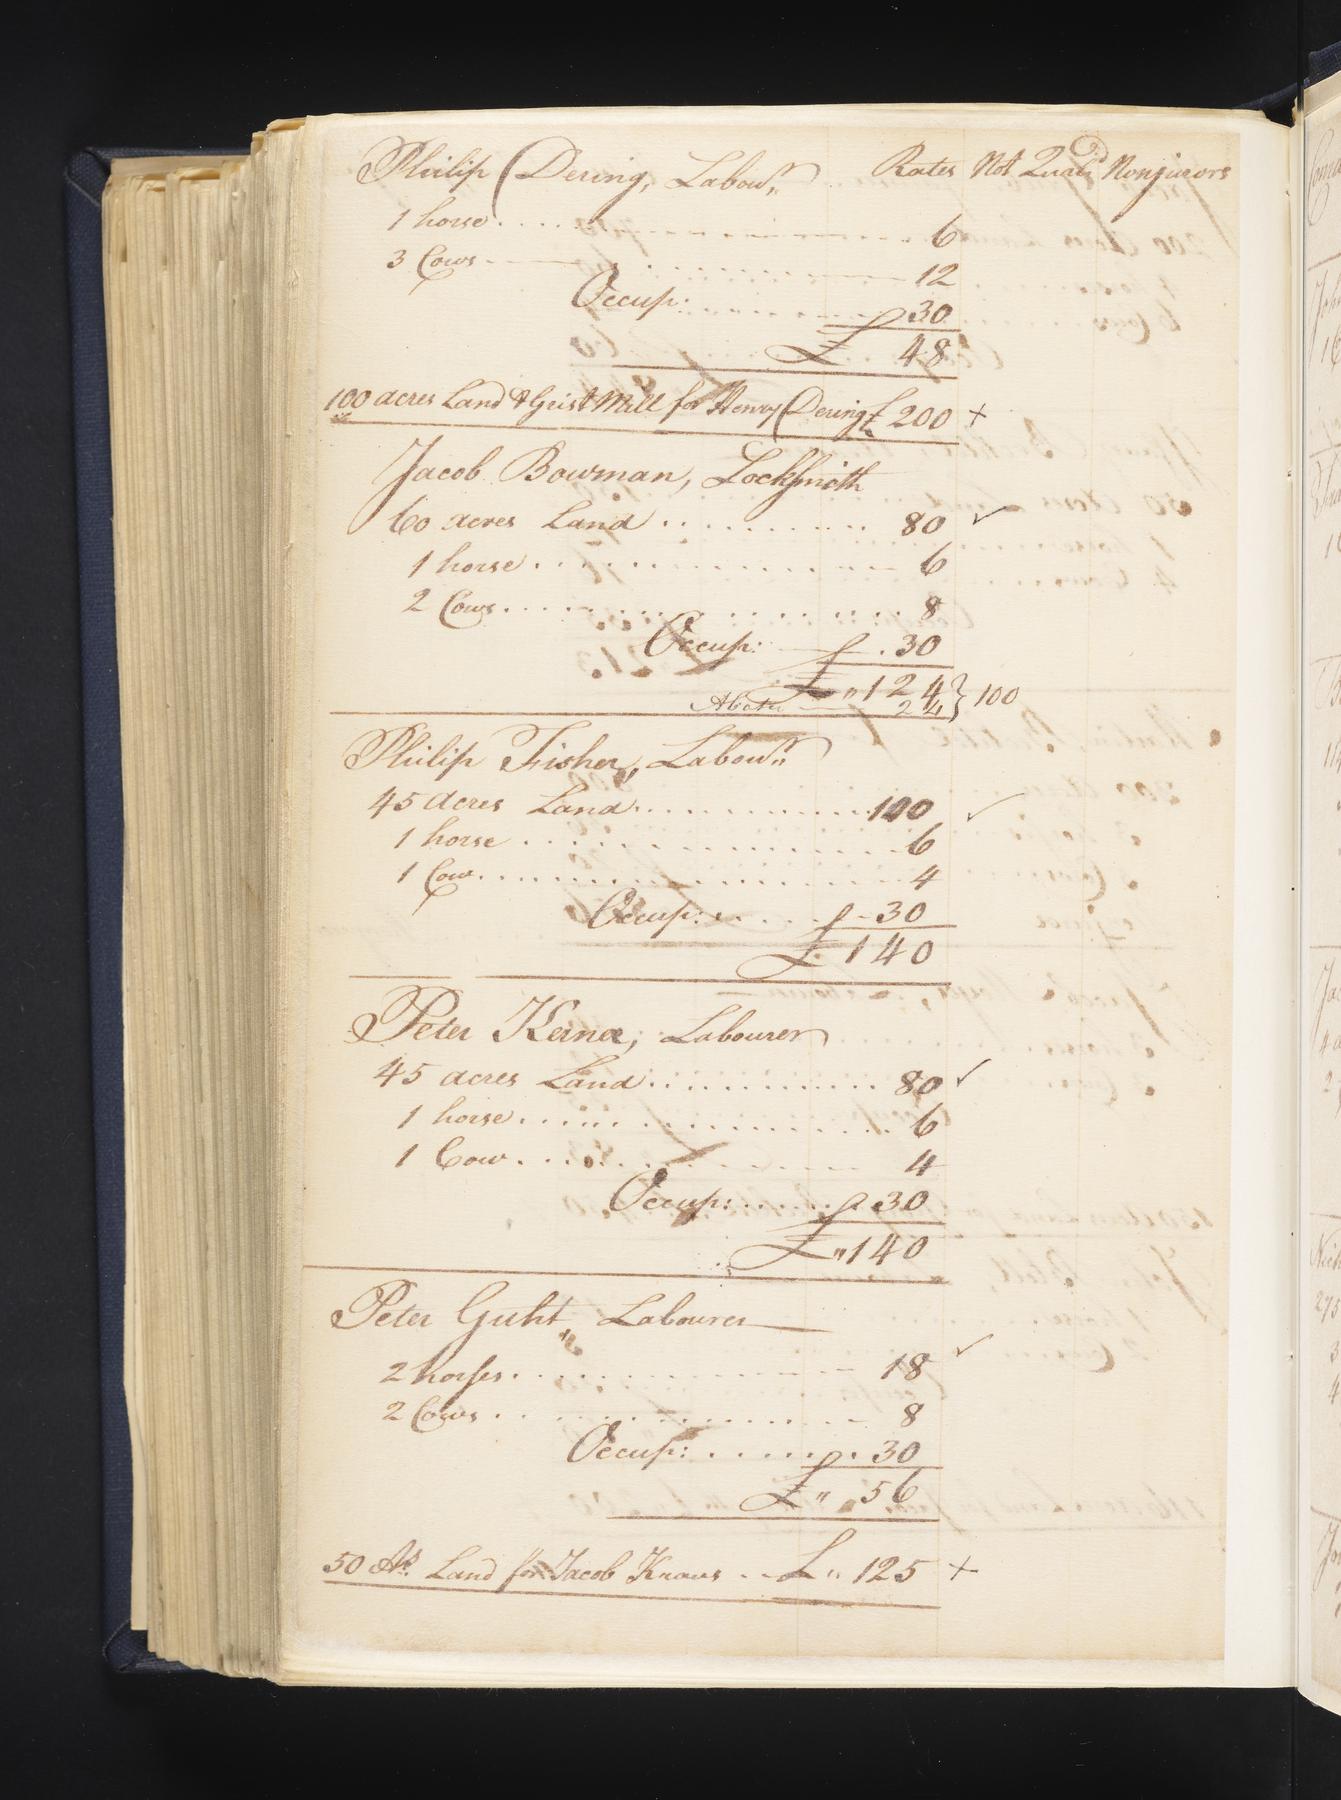 Philip Dering, Labour. Rates Not Qual:d Nonjurors
1 horse 6
3 Cows 12
Occup: 30
£ 48
100 acres Land & Grist Mill for Henry Dering £ 200 +
Jacob Bowman, Locksmith
60 acres Land 80 ✓
1 horse 6
2 Cows 8
Occup: 30
£ " 124 } 100
Abate 24
Philip Fisher, Labour.
45 acres Land 100 ✓
1 horse 6
1 Cow 4
Occup: 30
£ 140
Peter Kerner, Labourer
45 acres Land 80 ✓
1 horse 6
1 Cow 4
Occup: 30
£ " 140
Peter Guht, Labourer
2 horses 18 ✓
2 Cows 8
Occup: 30
£ " 56
50 As. Land for Jacob Knaus £ " 125 +